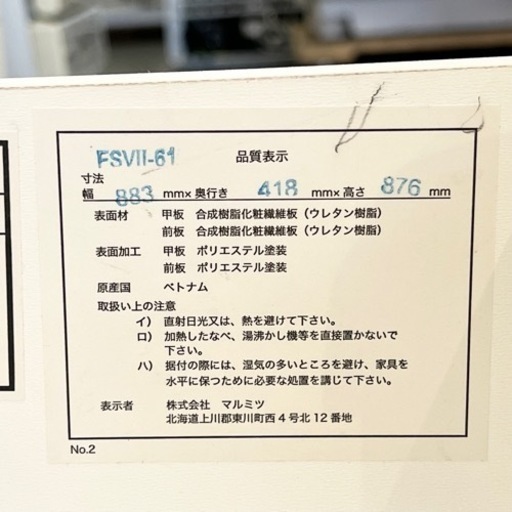 FSVII-61 品質表示
寸法
幅 883 mm× 奥行き 418 mm× 高さ 876 mm
表面材 甲板 合成樹脂化粧繊維板（ウレタン樹脂）
前板 合成樹脂化粧繊維板（ウレタン樹脂）
表面加工 甲板 ポリエステル塗装
前板 ポリエステル塗装
原産国 ベトナム
取扱い上の注意
イ） 直射日光又は、熱を避けて下さい。
ロ） 加熱したなべ、湯沸かし機等を直接置かないで
下さい。
ハ） 据付の際には、湿気の多いところを避け、家具を
水平に保つために必要な処置を講じて下さい。
表示者 株式会社 マルミツ
北海道上川郡東川町西4号北12番地
No.2